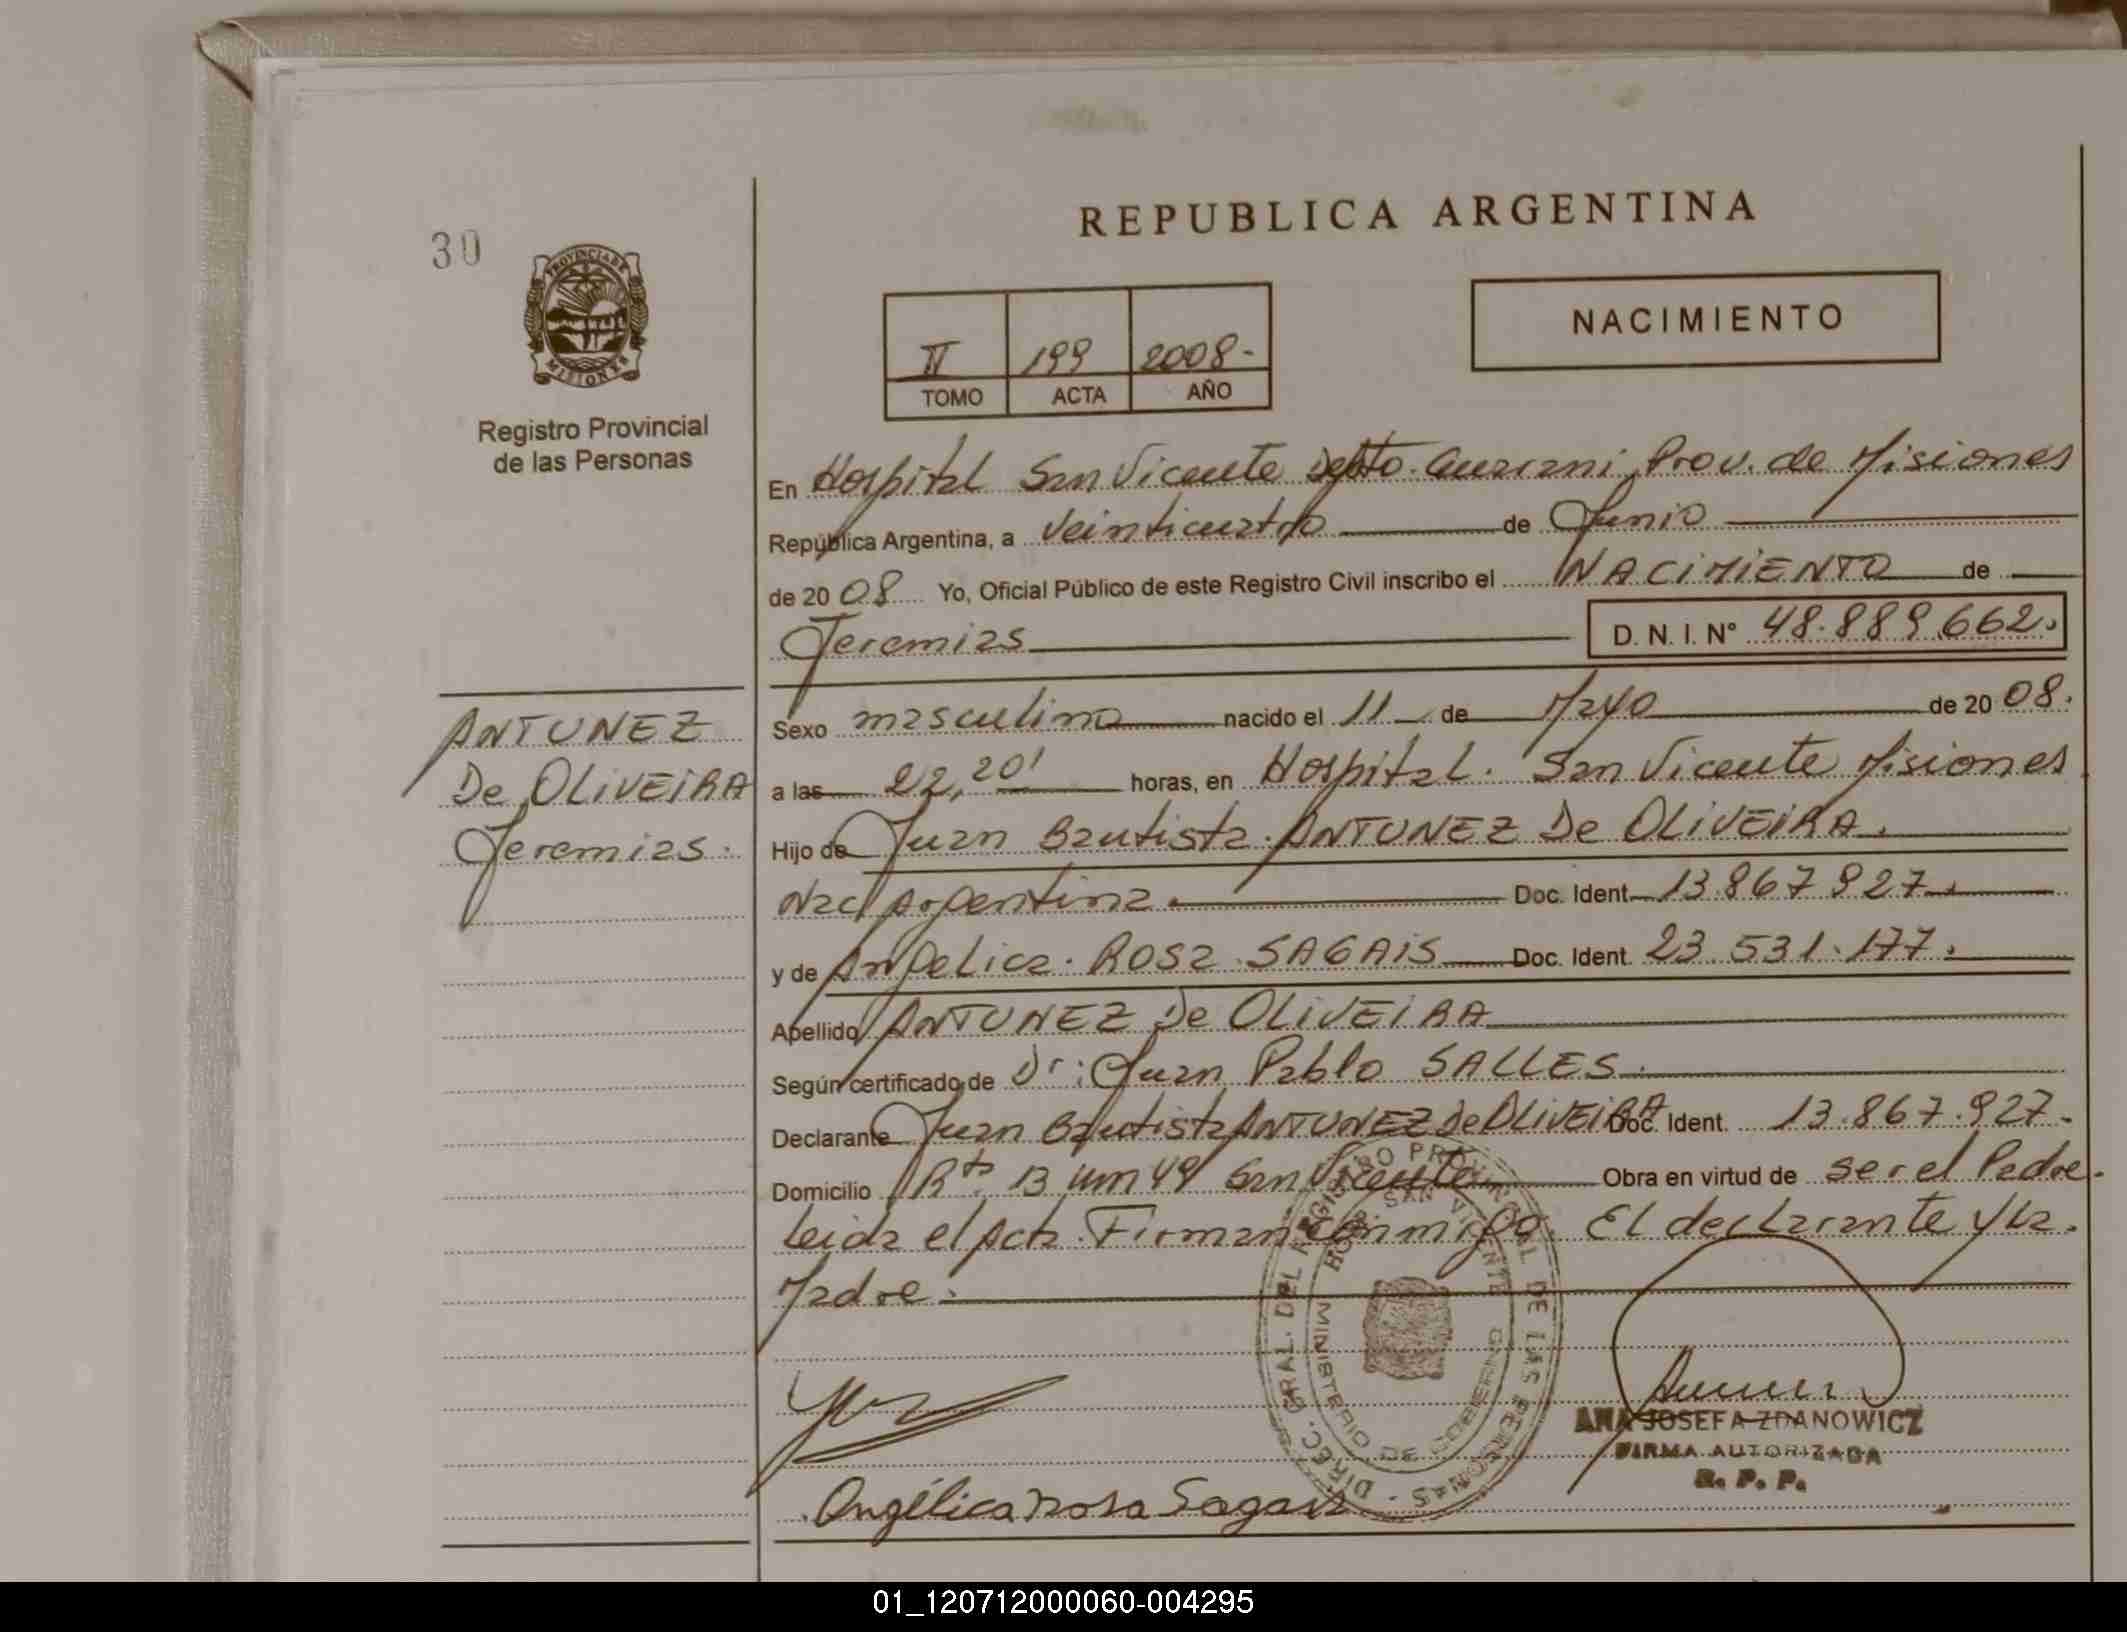 30
PROVINCIA DE
MISIONES
Registro Provincial
de las Personas
REPUBLICA ARGENTINA
II 199 2008-
TOMO ACTA AÑO
NACIMIENTO
En Hospital San Vicente Depto. Guarani Prov. de Misiones
República Argentina, a veinticuatro de Junio
de 20 08 Yo, Oficial Público de este Registro Civil inscribo el NACIMIENTO de
Jeremias D. N. I. N° 48.889.662.
ANTUNEZ
De OLIVEIRA
Jeremias.
Sexo masculino nacido el 11 de Mayo de 20 08.
a las 22,20' horas, en Hospital. San Vicente Misiones
Hijo de Juan Bautista. ANTUNEZ De OLIVEIRA.
Nac Argentina. Doc. Ident. 13.867.927.
y de Angelica. Rosa. SAGAIS Doc. Ident. 23.531.177.
Apellido ANTUNEZ De OLIVEIRA
Según certificado de Dr: Juan Pablo SALLES.
Declarante Juan Bautista ANTUNEZ de OLIVEIRA Doc. Ident. 13.867.927.
Domicilio Rta. 13 km 49 San Vicente Obra en virtud de ser el Padre.
Leida el Acta. Firman conmigo. El declarante y la.
Madre.
DIREC. GRAL. DEL REGISTRO PROVINCIAL DE LAS PERSONAS -
HOSP. SAN VICENTE
MINISTERIO DE GOBIERNO
ANA JOSEFA ZDANOWICZ
FIRMA AUTORIZADA
R. P. P.
Angélica rosa Sagais
01_120712000060-004295